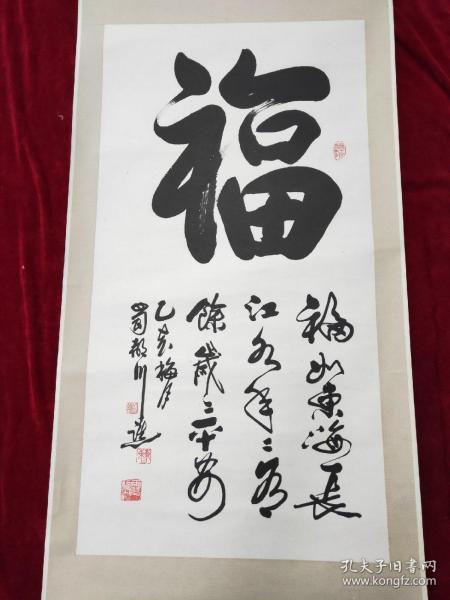 福
福如东海长
江水年々有
馀岁岁平安
乙亥梅月
蜀都川
孔夫子旧书网
www.kongfz.com